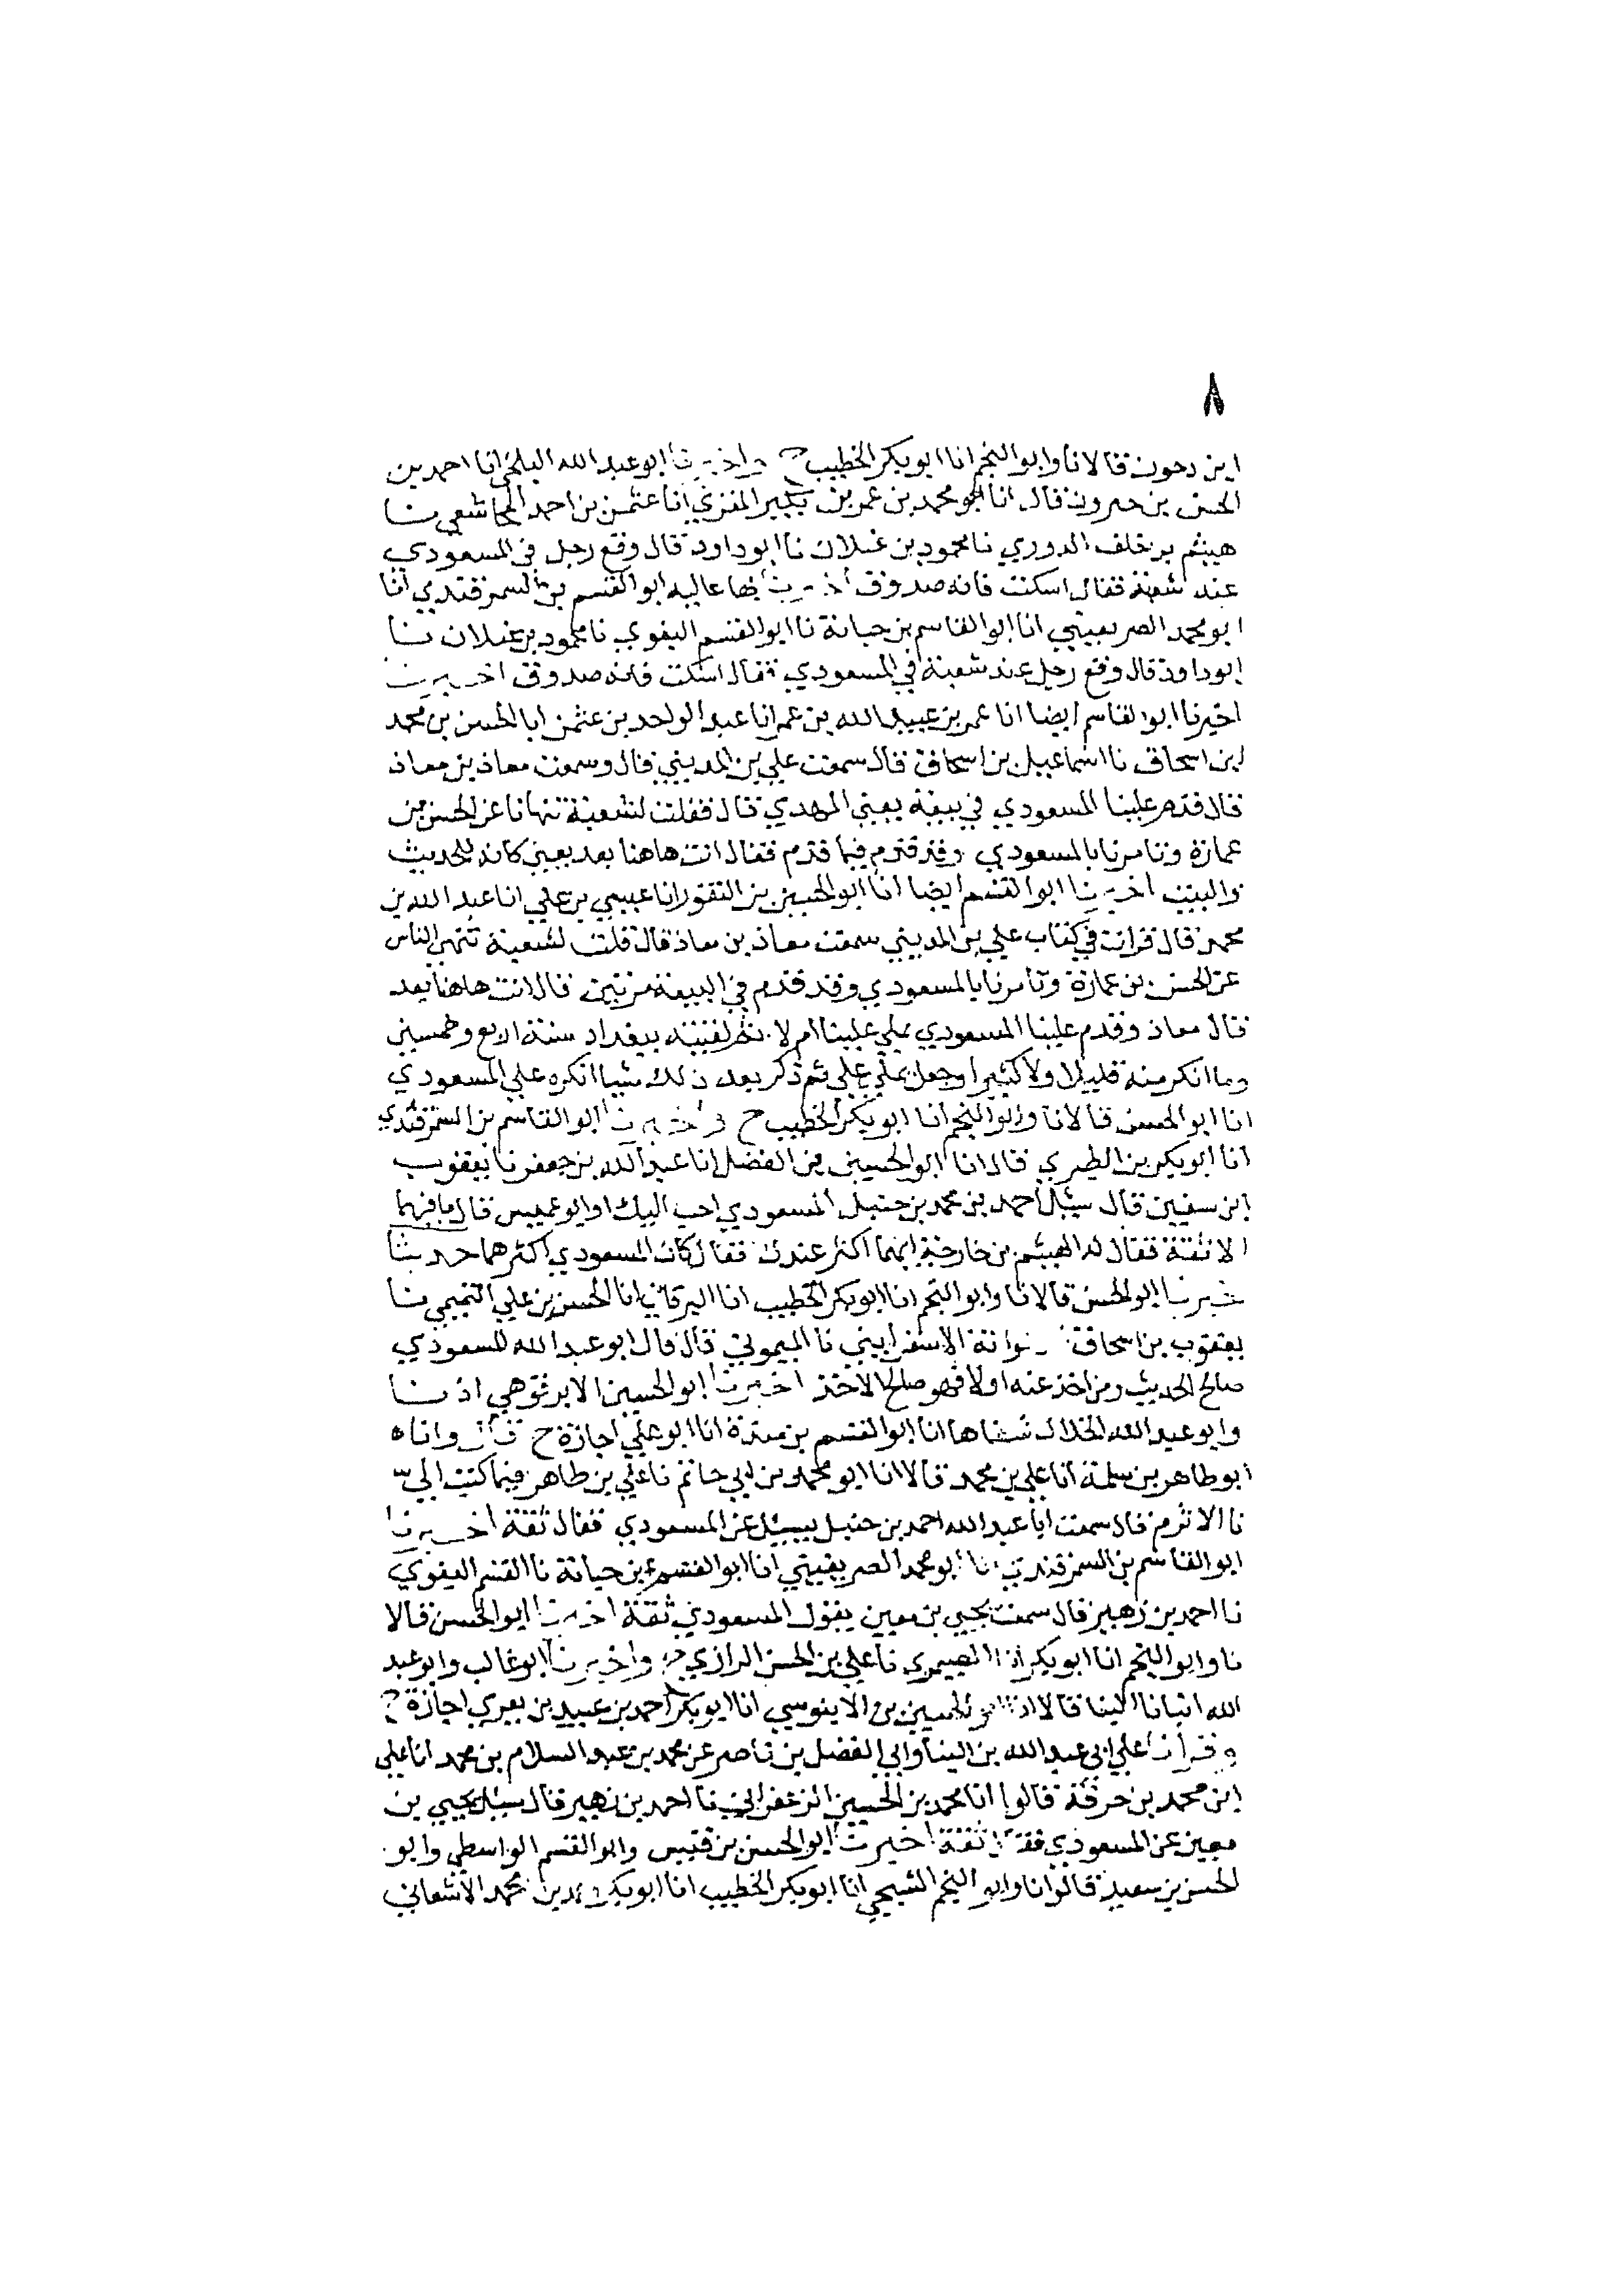 ٨
ابن دحون قالا نا وابو النجم انا ابو بكر الخطيب ح واخبرنا ابو عبد الله البلخي انا احمد بن
الحسن بن خيرون قال انا ابو محمد بن عمر بن بكير المقرئ انا عثمن بن احمد المجاشعي نا
هيثم بن خلف الدوري نا محمود بن غيلان نا ابو داود قال وقع رجل في المسعودي
عند شعبة فقال اسكت فانه صدوق اخبرنا بها عاليه ابو القسم بن السمرقندي انا
ابو محمد الصريفيني انا ابو القاسم بن حبابة نا ابو القسم البغوي نا محمود بن غيلان نا
ابو داود قال وقع رجل عند شعبة في المسعودي فقال اسكت فانه صدوق اخبرنا
اخبرنا ابو القاسم ايضا انا عمر بن عبيد الله بن عمر انا عبد الواحد بن عثمن انا الحسن بن محمد
ابن اسحاق نا اسماعيل بن اسحاق قال سمعت علي بن المديني قال وسمعت معاذ بن معاذ
قال قدم علينا المسعودي في بيعة يعني المهدي قال فقلت لشعبة تنهانا عن الحسن بن
عمارة وتامرنا بالمسعودي وقد قدم فيما قدم فقال انت هاهنا بعد يعني كانه للحديث
والبيت اخبرنا ابو القسم ايضا انا ابو الحسين بن النقور انا عيسى بن علي انا عبد الله بن
محمد قال قرات في كتاب علي بن المديني سمعت معاذ بن معاذ قال قلت لشعبة تنهى الناس
عن الحسن بن عمارة وتامرنا بالمسعودي وقد قدم في البيعة مرتين قال انت هاهنا بعد
قال معاذ وقدم علينا المسعودي يملي علينا املا ثم لقيته ببغداد سنة اربع وخمسين
وما انكر منه قليلا ولا كثيرا وجعل يملي علي ثم ذكر بعد ذلك شيا انكره على المسعودي
انا ابو الحسن قالا نا وابو النجم انا ابو بكر الخطيب ح واخبرنا ابو القاسم بن السمرقندي
انا ابو بكر بن الطبري قال انا ابو الحسين بن الفضل انا عبد الله بن جعفر نا يعقوب
ابن سفين قال سئل احمد بن محمد بن حنبل المسعودي احب اليك او ابو عميس قال ما فيهما
الا ثقة فقال له الهيثم بن خارجة ايهما اكثر عندك فقال كان المسعودي اكثرهما حديثا
اخبرنا ابو الحسن قالا نا وابو النجم انا ابو بكر الخطيب انا البرقاني انا الحسن بن علي التميمي نا
يعقوب بن اسحاق ابو عوانة الاسفراييني نا الميموني قال قال ابو عبد الله المسعودي
صالح الحديث ومن اخذ عنه اولا فهو صالح الاخذ اخبرنا ابو الحسين الابرقوهي اذنا
وابو عبد الله الخلال شفاها انا ابو القسم بن مندة انا ابو علي اجازة ح قال وانا
ابو طاهر بن سلمة انا علي بن محمد قالا انا ابو محمد بن ابي حاتم نا علي بن طاهر فيما كتب الي
نا الاثرم قال سمعت ابا عبد الله احمد بن حنبل يسئل عن المسعودي فقال ثقة اخبرنا
ابو القاسم بن السمرقندي انا ابو محمد الصريفيني انا ابو القسم بن حبابة نا القسم البغوي
نا احمد بن زهير قال سمعت يحيى بن معين يقول المسعودي ثقة اخبرنا ابو الحسن قالا
نا وابو النجم انا ابو بكر انا الصيمري نا علي بن الحسن الرازي ح واخبرنا ابو غالب وابو عبد
الله ابنا البنا قالا انا ابو الحسين بن الابنوسي انا ابو بكر احمد بن عبيد بن بيري اجازة ح
وقرانا على ابي عبد الله بن البنا وابي الفضل بن ناصر عن محمد بن عبد السلام بن محمد انا علي
ابن محمد بن خزفة قالوا انا محمد بن الحسين الزعفراني نا احمد بن زهير قال سئل يحيى بن
معين عن المسعودي فقال ثقة اخبرنا ابو الحسن بن قبيس وابو القسم الواسطي وابو
الحسن بن سعيد قالوا نا وابو النجم الشيحي انا ابو بكر الخطيب انا ابو بكر بن محمد الاشناني